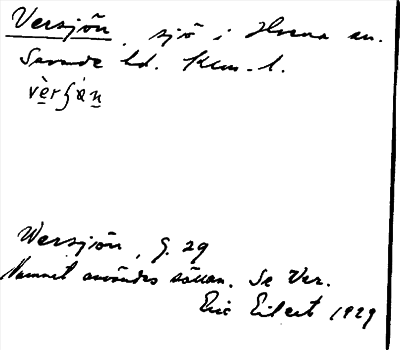 Versjön, sjö i Hvena sn.
Sevede hd. Klm. l.
vèrʃán
Wersjön, G. 29
Namnet användes sällan. Se Ver.
Eric Eilert 1929